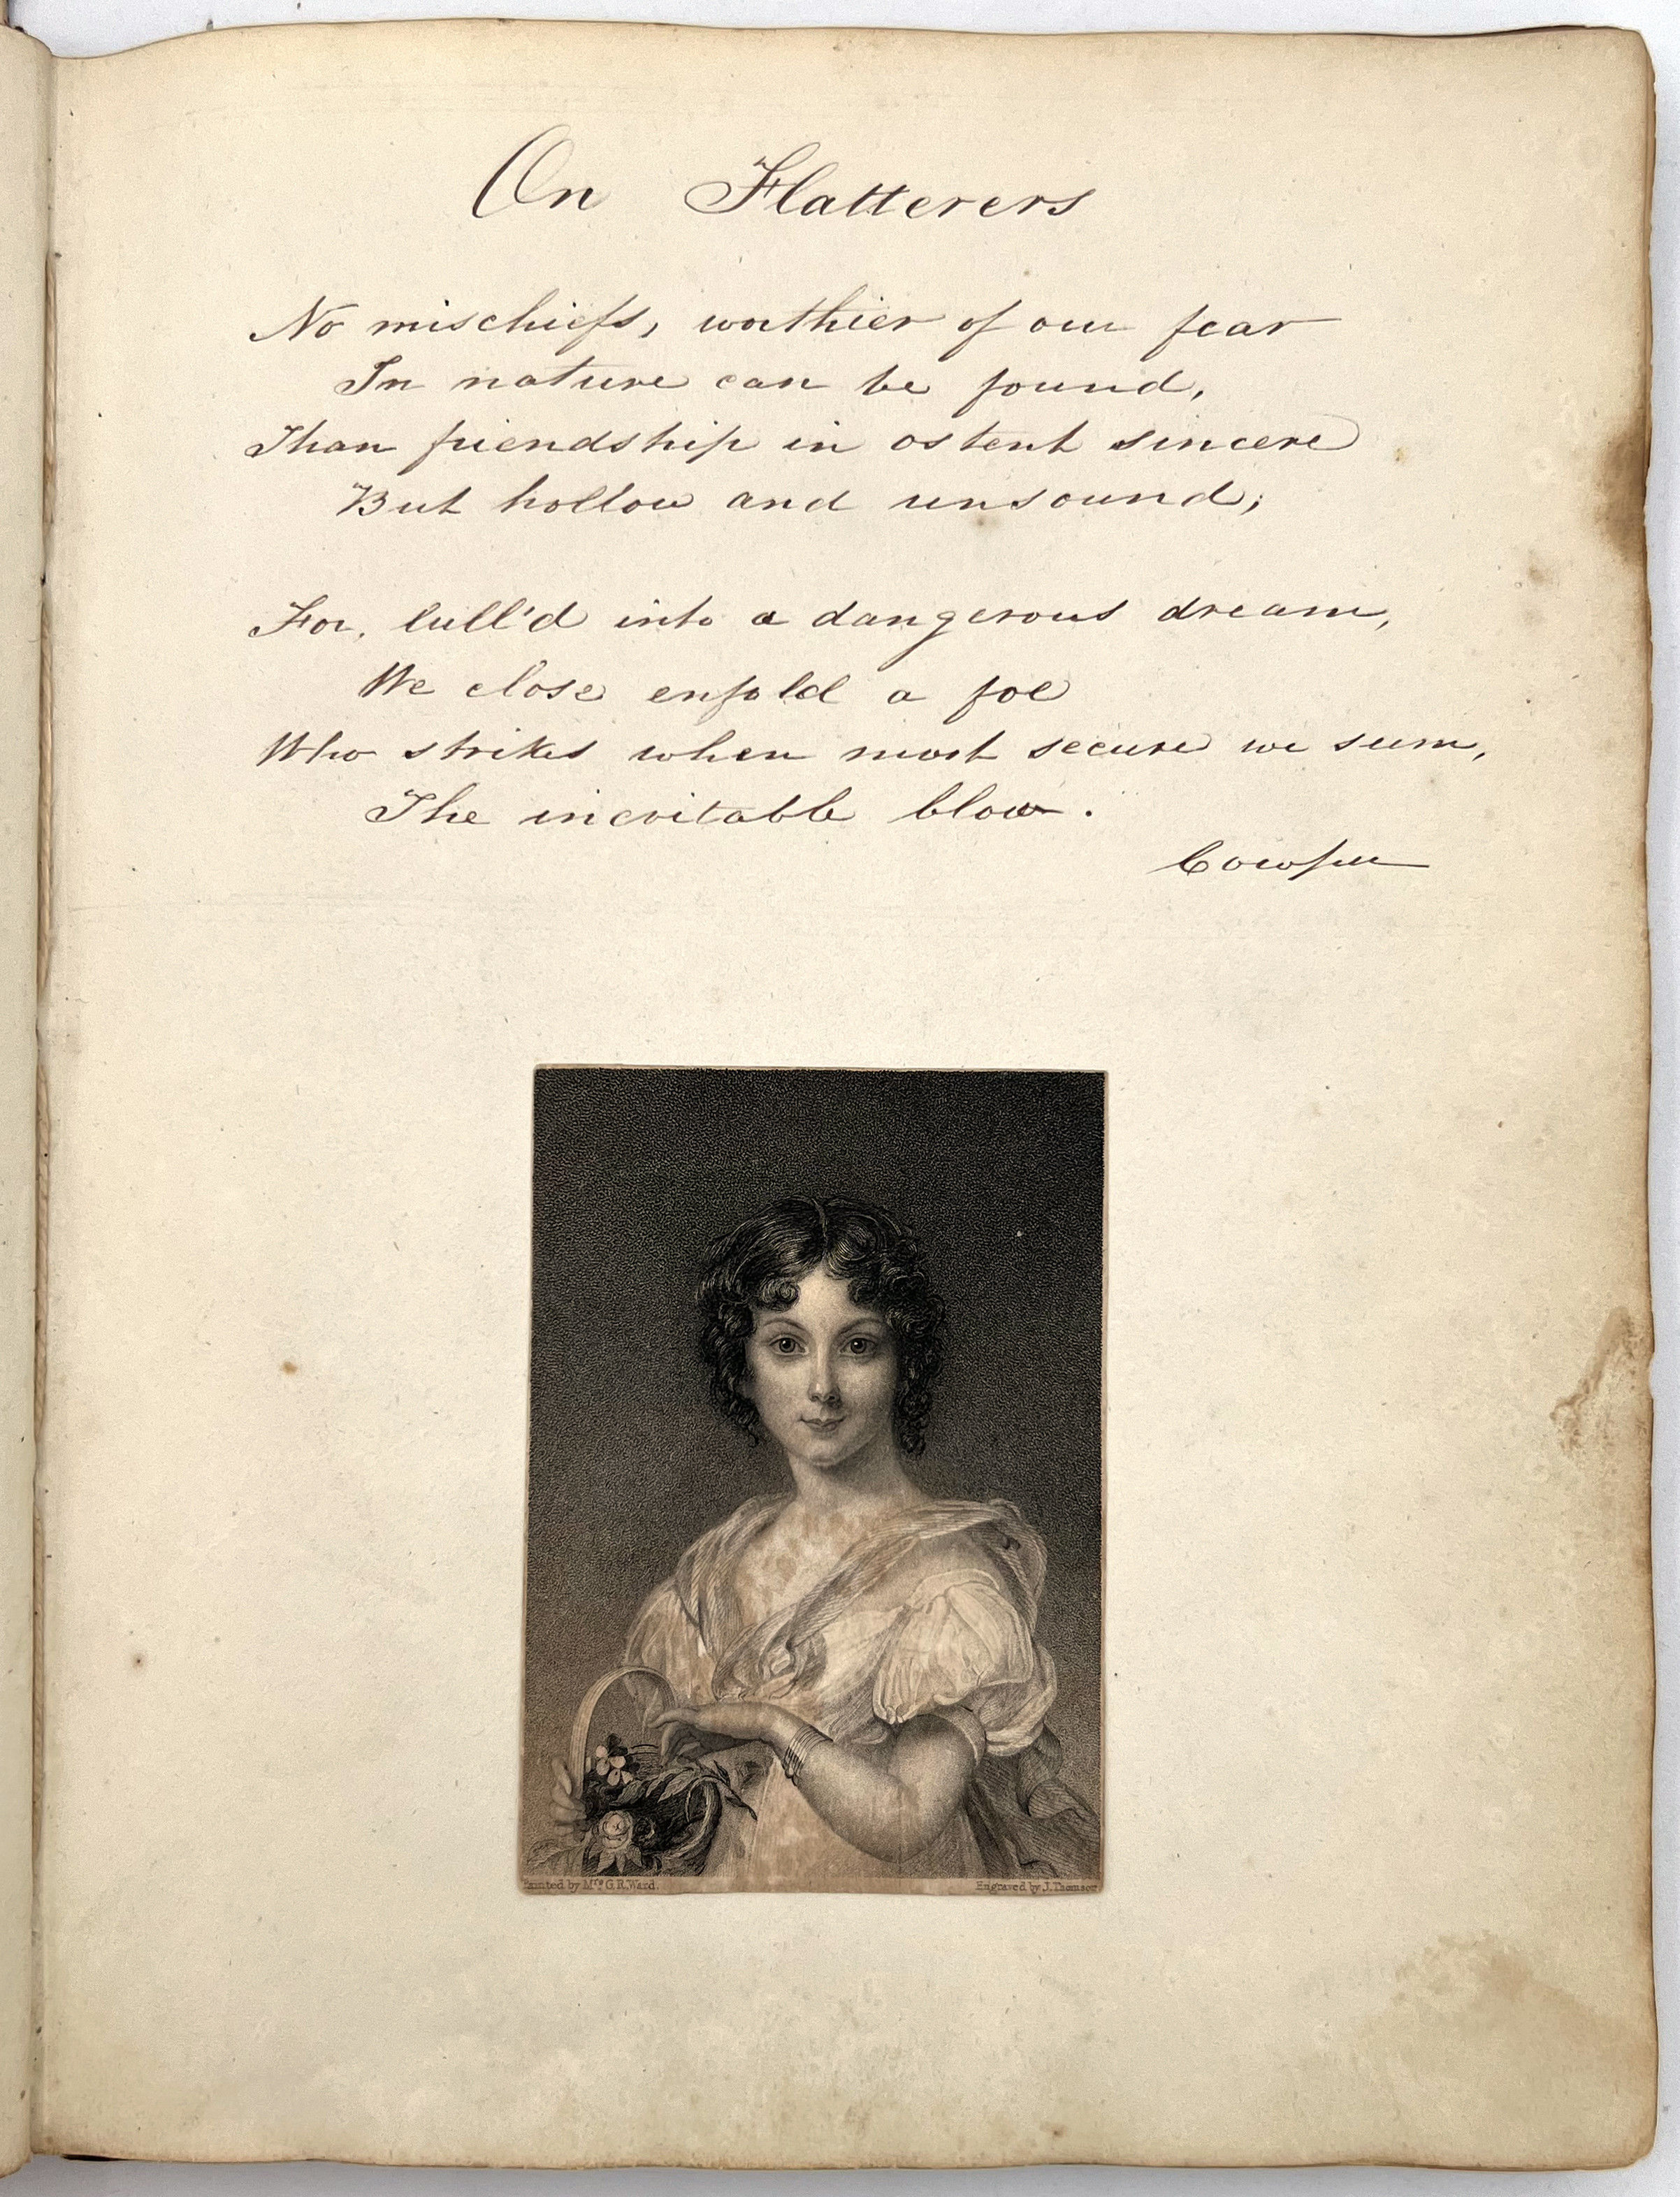 On Flatterers
No mischiefs, worthier of our fear
In nature can be found,
Than friendship in ostent sincere
But hollow and unsound;
For, lull'd into a dangerous dream,
We close enfold a foe
Who strikes when most secure we seem,
The inevitable blow.
Cowper
Painted by Mrs. G.R. Ward.
Engraved by J. Thomson